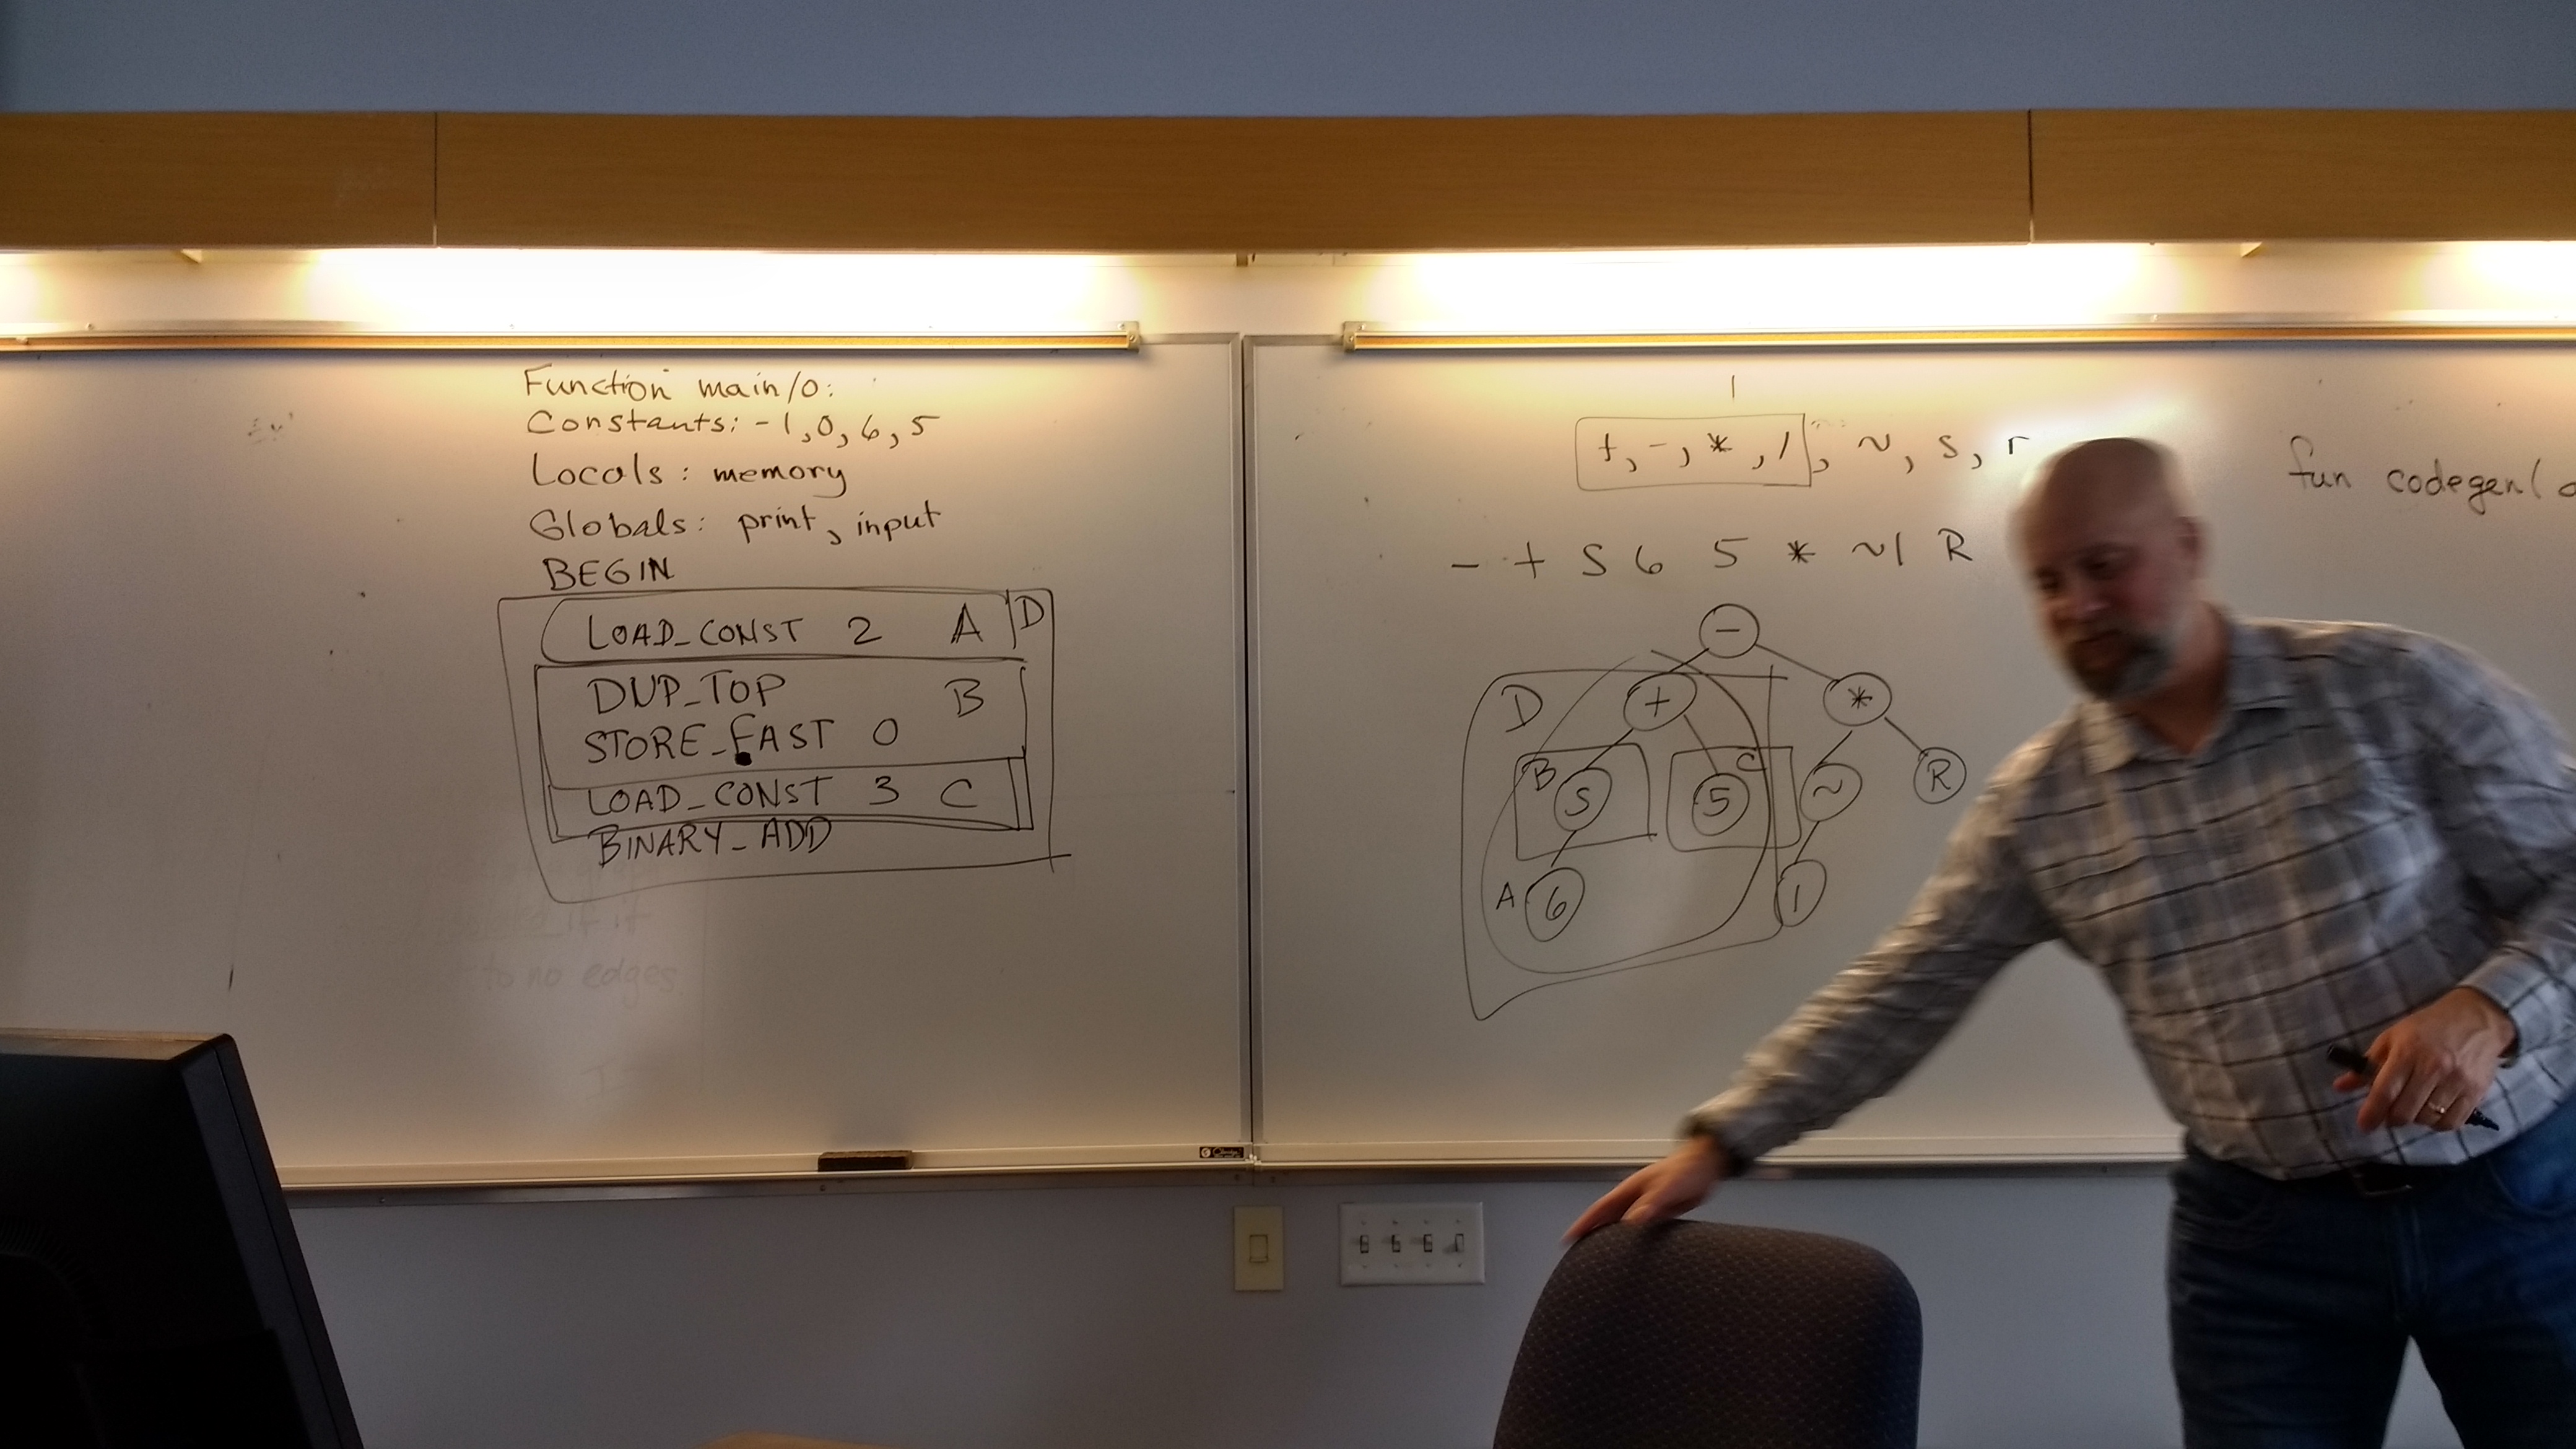 Function main/0:
Constants: -1, 0, 6, 5
Locals: memory
Globals: print, input
BEGIN
LOAD_CONST 2 A D
DUP_TOP B
STORE_FAST 0
LOAD_CONST 3 C
BINARY_ADD
if it
to no edges
+, -, *, /, ~, S, r
- + S 6 5 * ~1 R
-
D + *
B S C 5 ~ R
A 6 1
fun codegen(